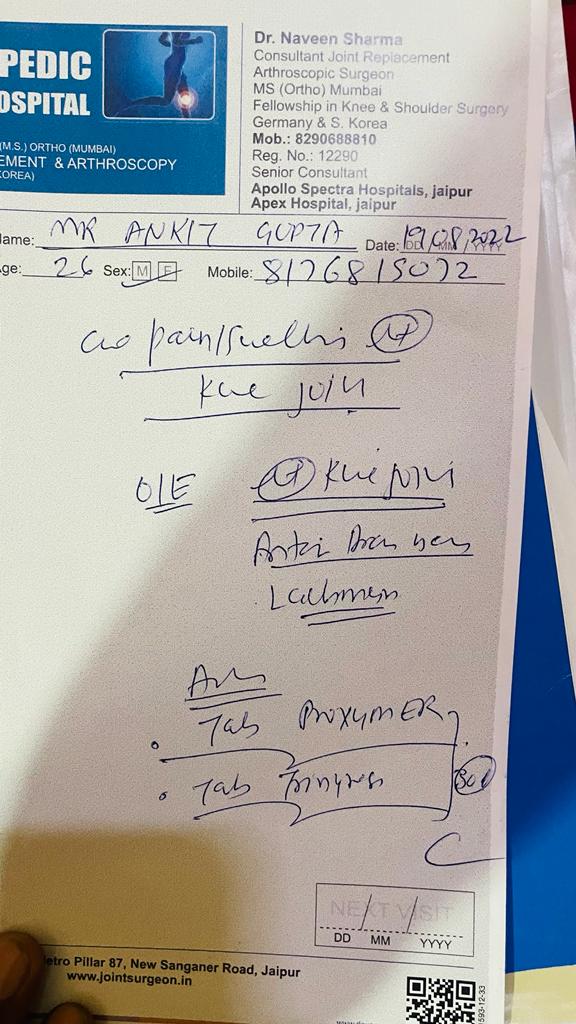 PEDIC
OSPITAL
(M.S.) ORTHO (MUMBAI)
EMENT & ARTHROSCOPY
KOREA)
Dr. Naveen Sharma
Consultant Joint Replacement
Arthroscopic Surgeon
MS (Ortho) Mumbai
Fellowship in Knee & Shoulder Surgery
Germany & S. Korea
Mob.: 8290688810
Reg. No.: 12290
Senior Consultant
Apollo Spectra Hospitals, jaipur
Apex Hospital, jaipur
Name: MR ANKIT GUPTA Date: DD/MM/YYYY 19/08/2022
ge: 26 Sex: M F Mobile: 8176815072
c/o pain/swelling
Knee joint
O/E Knee joint
Lachman
Adv
Tab
Tab
NEXT VISIT
DD MM YYYY
etro Pillar 87, New Sanganer Road, Jaipur
www.jointsurgeon.in
593-12-33